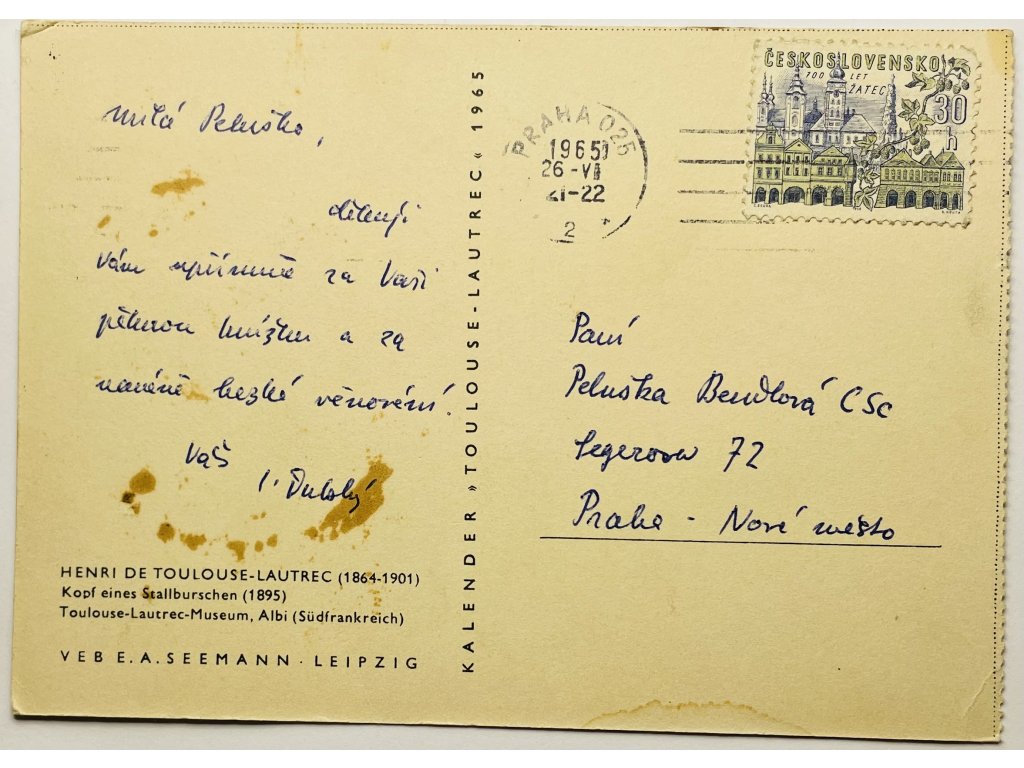 Milá Peluško,
děkuji
Vám upřímně za Vaši
pěknou knížku a za
neméně hezké věnování!
Váš
Dubský
HENRI DE TOULOUSE-LAUTREC (1864-1901)
Kopf eines Stallburschen (1895)
Toulouse-Lautrec-Museum, Albi (Südfrankreich)
VEB E. A. SEEMANN · LEIPZIG
KALENDER »TOULOUSE-LAUTREC« 1965
PRAHA 025
1965
26 -VI
21-22
2
ČESKOSLOVENSKO
700 LET
ŽATEC
30
h
Paní
Peluška Bendlová CSc
Legerova 72
Praha - Nové město